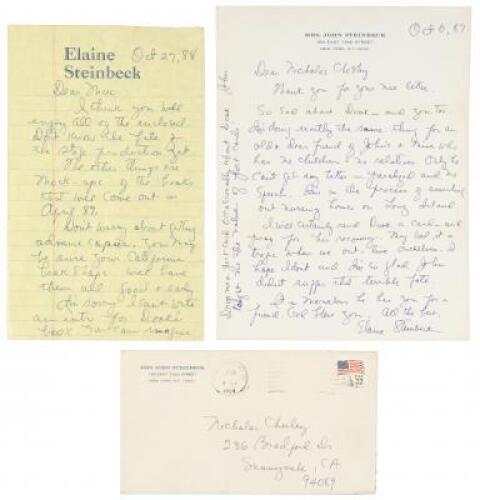 Elaine
Steinbeck
Oct 27, 88
Dear
I think you will
enjoy all of the enclosed.
Don't know the fate of
the stage production yet.
The other things are
mock-ups of the books
that will come out in
April 89.
Don't worry about getting
advance copies. You may
be sure your California
book shops will have
them all good & early
I'm sorry I can't write
an intro for
book. You can imagine
MRS. JOHN STEINBECK
190 EAST 72ND STREET
NEW YORK, N.Y. 10021
Oct 6, 87
Dear Nicholas
Thank you for your nice letter.
So sad about and you too
I'm doing exactly the same thing for an
old & dear friend of John's & mine who
has no children & no relatives. Only he
can't get any better - paralyzed and no
speech. I'm in the process of
out nursing homes on Long Island
I will certainly send a card - and
pray for his recovery. My God, it's
tragic when we out-live ourselves. I
hope I don't and I'm so glad John
didn't suffer that terrible fate.
for you for a
friend. God bless you. All the best,
Elaine Steinbeck
MRS. JOHN STEINBECK
190 EAST 72ND STREET
NEW YORK, N.Y. 10021
Nicholas
236 Bradford Dr
Sunnyvale, CA
94089